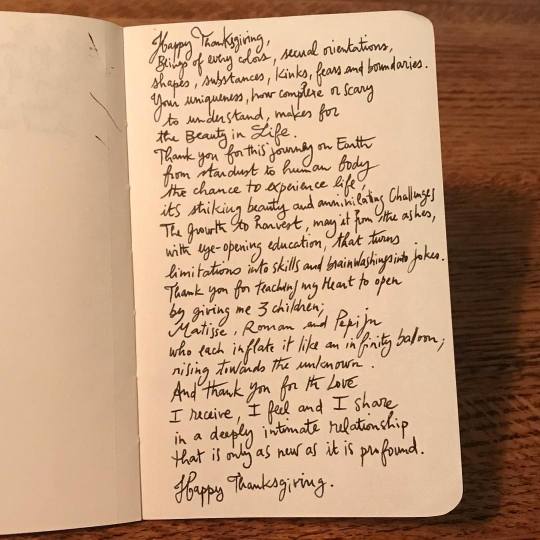 Happy Thanksgiving,
Beings of every color, sexual orientations,
shapes, substances, kinks, fears and boundaries.
Your uniqueness, how complexe or scary
to understand, makes for
the Beauty in Life.
Thank you for this journey on Earth
from stardust to human body
the chance to experience life,
its striking beauty and annihilating Challenges
The growth to harvest, may it from the ashes,
with eye-opening education, that turns
limitations into skills and brainwashings into jokes.
Thank you for teaching my Heart to open
by giving me 3 children;
Matisse, Roman and Pepijn
who each inflate it like an infinity balloon,
rising towards the unknown.
And thank you for the Love
I receive, I feel and I share
in a deeply intimate relationship
that is only as new as it is profound.
Happy Thanksgiving.